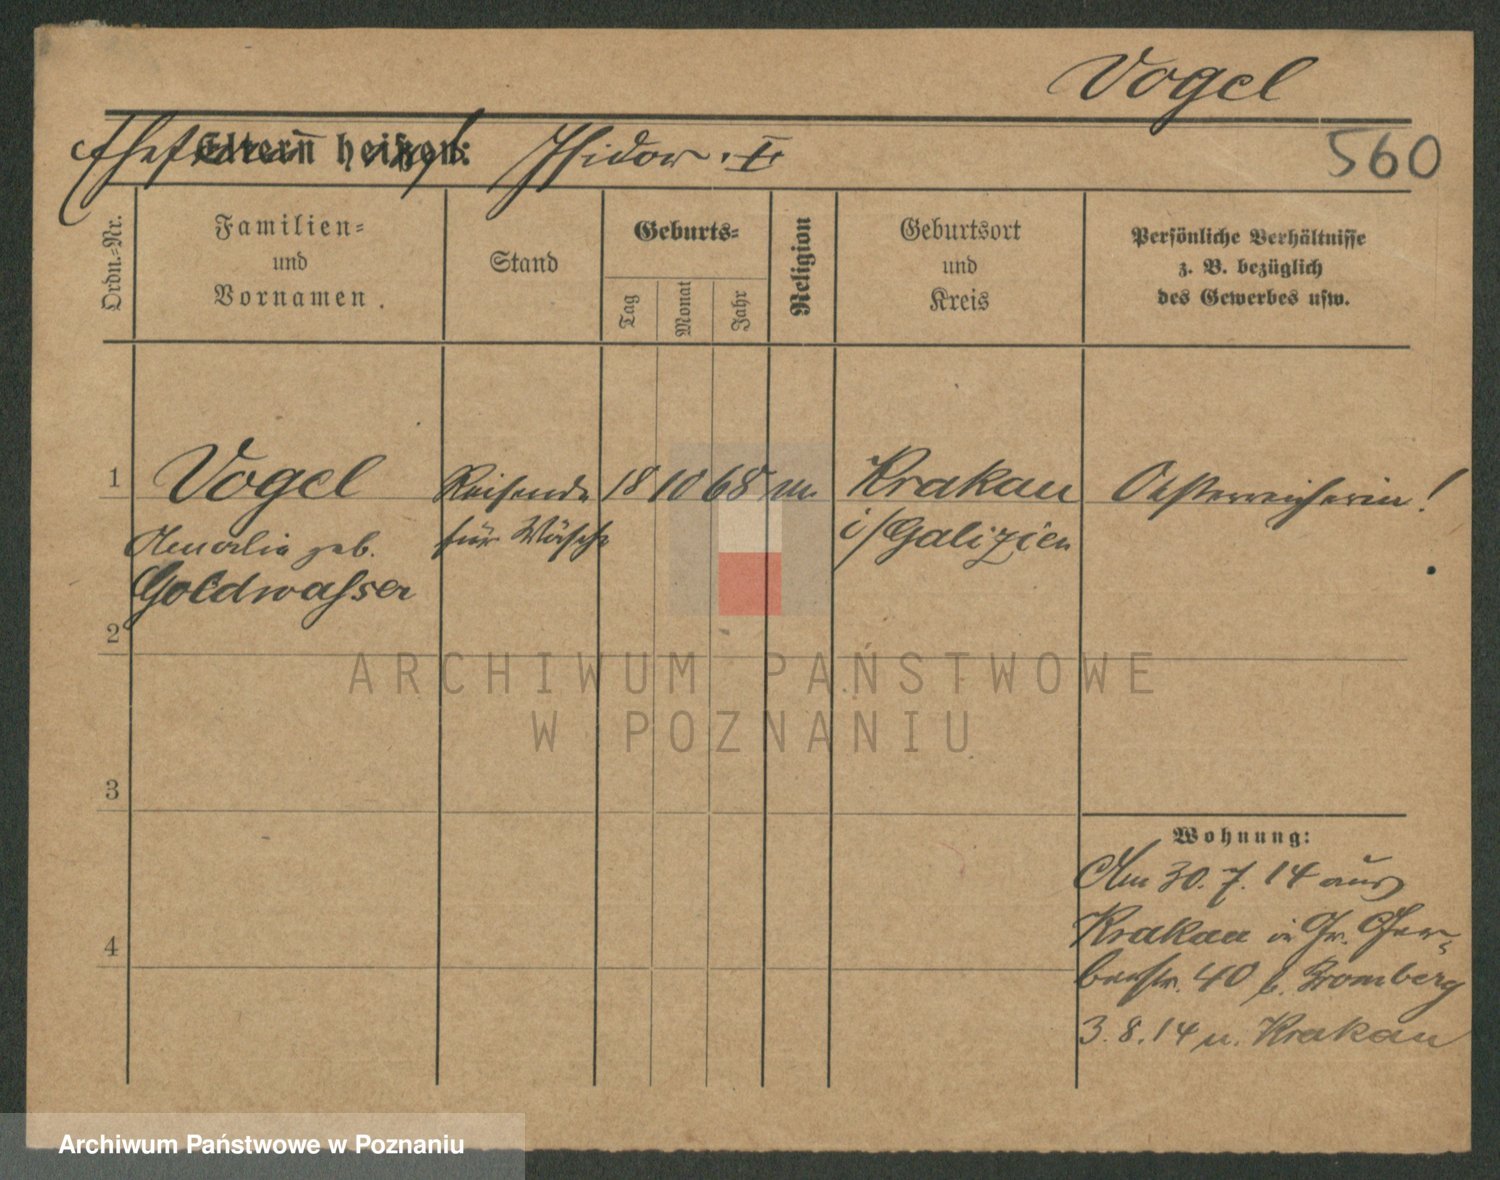 Vogel
Eltern heißen: Isidor I.
560
Ordn.-Nr.
Familien-
und
Vornamen.
Stand
Geburts-
Tag
Monat
Jahr
Religion
Geburtsort
und
Kreis
Persönliche Verhältnisse
z. B. bezüglich
des Gewerbes usw.
1
Vogel
Amalie geb.
Goldwasser
Reisende
für Wäsche
18 10 68 m.
Krakau
i/Galizien
Oesterreicherin!
2
ARCHIWUM PAŃSTWOWE
W POZNANIU
3
Wohnung:
Am 30.7.14 aus
Krakau in Gr. Ger-
berstr. 40 b. Bromberg
3.8.14 n. Krakau
4
Archiwum Państwowe w Poznaniu